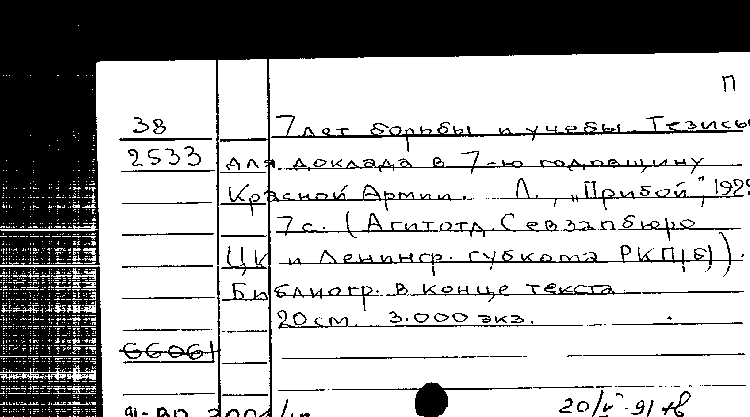 П
38 7 лет борьбы и учебы. Тезисы
2533 для доклада в 7-ю годовщину
Красной Армии. Л., „Прибой", 1925
7с. (Агитотд. Севзапбюро
ЦК и Ленингр. губкома РКП(б)).
Библиогр. в конце текста
20 см. 3.000 экз.
66061
20/V-91